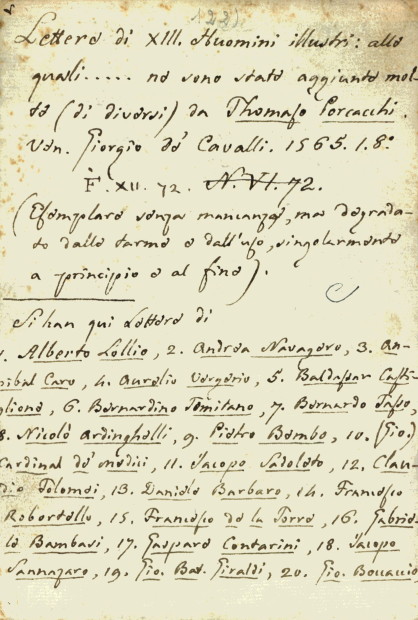 (122).
Lettere di XIII. Huomini illustri: alle
quali..... ne sono state aggiunte mol-
te (di diversi) da Thomaso Porcacchi.
Ven. Giorgio de' Cavalli. 1565. 8.°
F. XII. 72. N. VI. 72.
(Esemplare senza mancanze, ma degrada-
to dalle tarme e dall'uso, singolarmente
a principio e al fine).
Si han qui Lettere di
1. Alberto Lollio, 2. Andrea Navagero, 3. An-
nibal Caro, 4. Aurelio Vergerio, 5. Baldassar Casti-
glione, 6. Bernardino Tomitano, 7. Bernardo Tasso,
8. Nicolò Ardinghelli, 9. Pietro Bembo, 10. (Gio.)
Cardinal de' Medici, 11. Jacopo Sadoleto, 12. Clau-
dio Tolomei, 13. Daniele Barbaro, 14. Francesco
Robortello, 15. Francesco de la Torre, 16. Gabrie-
le Bambasi, 17. Gasparo Contarini, 18. Jacopo
Sannazaro, 19. Gio. Bat. Giraldi, 20. Gio. Boccaccio